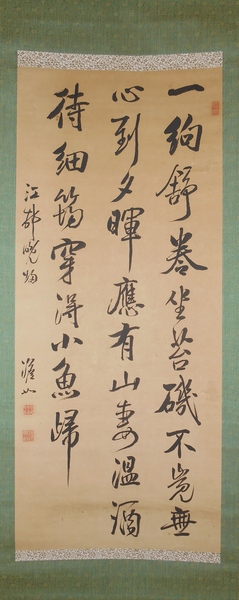 一絢舒卷坐苔磯不覚無
心到夕暉應有山妻温酒
待細筠穿得小魚歸
江邨晩釣
澹山